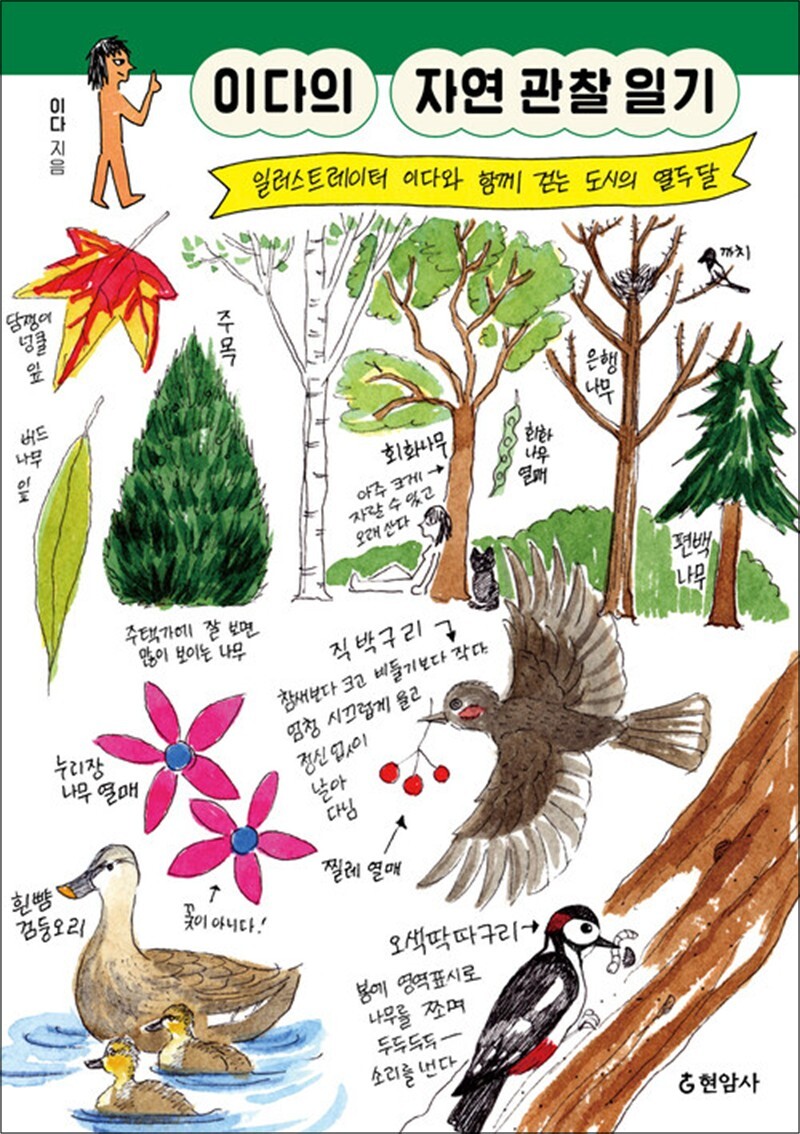 이다 지음
이다의 자연 관찰 일기
일러스트레이터 이다와 함께 걷는 도시의 열두 달
까치
담쟁이
넝쿨
잎
주목
은행
나무
버드
나무
잎
회화나무
아주 크게
자랄 수 있고
오래 산다
회화
나무
열매
편백
나무
주택가에 잘 보면
많이 보이는 나무
직박구리
참새보다 크고 비둘기보다 작다
엄청 시끄럽게 울고
정신없이
날아
다님
누리장
나무 열매
찔레 열매
꽃이 아니다!
흰뺨
검둥오리
오색딱따구리
봄에 영역표시로
나무를 쪼며
두두두두—
소리를 낸다
현암사